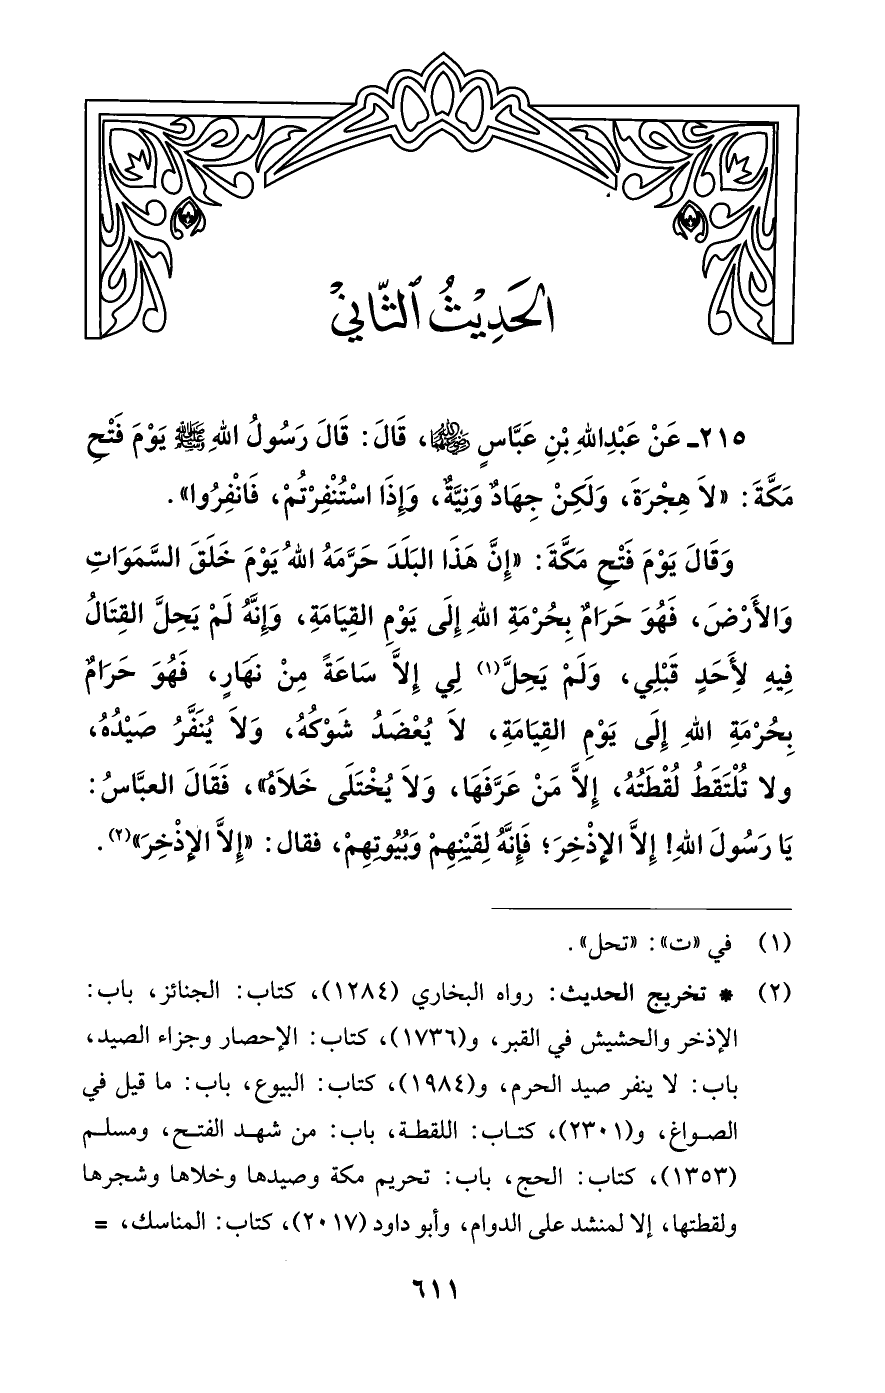 الحَدِيْثُ الثَّانِيْ
٢١٥ـ عَنْ عَبْدِاللهِ بْنِ عَبَّاسٍ ﵄، قَالَ: قَالَ رَسُولُ اللهِ ﷺ يَوْمَ فَتْحِ
مَكَّةَ: «لاَ هِجْرَةَ، وَلَكِنْ جِهَادٌ وَنِيَّةٌ، وَإِذَا اسْتُنْفِرْتُمْ، فَانْفِرُوا».
وَقَالَ يَوْمَ فَتْحِ مَكَّةَ: «إِنَّ هَذَا البَلَدَ حَرَّمَهُ اللهُ يَوْمَ خَلَقَ السَّمَوَاتِ
وَالأَرْضَ، فَهُوَ حَرَامٌ بِحُرْمَةِ اللهِ إِلَى يَوْمِ القِيَامَةِ، وَإِنَّهُ لَمْ يَحِلَّ القِتَالُ
فِيهِ لِأَحَدٍ قَبْلِي، وَلَمْ يَحِلَّ(١) لِي إِلاَّ سَاعَةً مِنْ نَهَارٍ، فَهُوَ حَرَامٌ
بِحُرْمَةِ اللهِ إِلَى يَوْمِ القِيَامَةِ، لاَ يُعْضَدُ شَوْكُهُ، وَلاَ يُنَفَّرُ صَيْدُهُ،
ولا تُلْتَقَطُ لُقْطَتُهُ، إِلاَّ مَنْ عَرَّفَهَا، وَلاَ يُخْتَلَى خَلاَهُ»، فَقَالَ العبَّاسُ:
يَا رَسُولَ اللهِ! إِلاَّ الإِذْخِرَ؛ فَإِنَّهُ لِقَيْنِهِمْ وَبُيُوتِهِمْ، فقال: «إِلاَّ الإِذْخِرَ»(٢).
(١) في «ت»: «تحل».
(٢) * تخريج الحديث: رواه البخاري (١٢٨٤)، كتاب: الجنائز، باب:
الإذخر والحشيش في القبر، و(١٧٣٦)، كتاب: الإحصار وجزاء الصيد،
باب: لا ينفر صيد الحرم، و(١٩٨٤)، كتاب: البيوع، باب: ما قيل في
الصواغ، و(٢٣٠١)، كتاب: اللقطة، باب: من شهد الفتح، ومسلم
(١٣٥٣)، كتاب: الحج، باب: تحريم مكة وصيدها وخلاها وشجرها
ولقطتها، إلا لمنشد على الدوام، وأبو داود (٢٠١٧)، كتاب: المناسك، =
٦١١